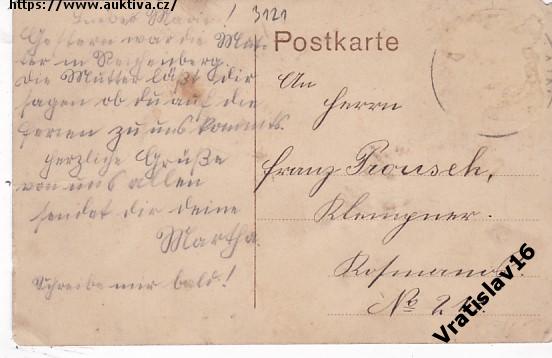 Zdroj: https://www.auktiva.cz/
3121
Liebe Marie!
Gestern war die Mut-
ter in Reichenberg.
Die Mutter läßt dir
sagen ob du auf die
Ferien zu uns kommst.
Herzliche Grüße
von uns allen
sendet dir deine
Martha.
Schreibe mir bald!
Postkarte
An
Herrn
Franz Prousek,
Klempner.
Kosmanos.
No 21.
Vratislav16